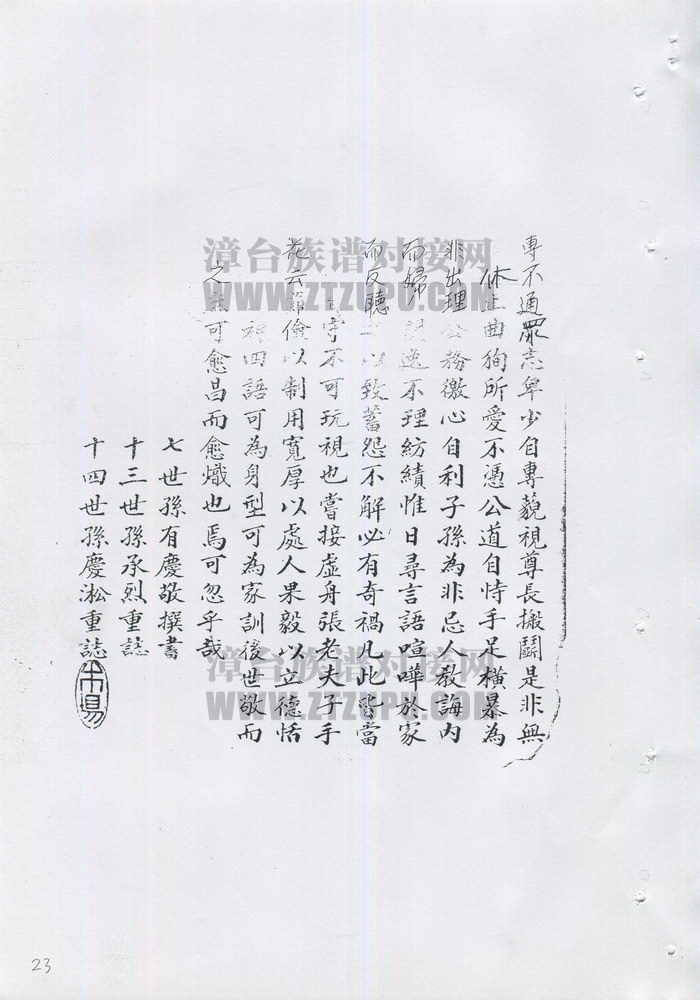 專不通眾志卑少自專藐視尊長搬鬪是非無
休止曲狥所愛不憑公道自恃手足橫暴為
非出理公務徼心自利子孫為非忌人教誨內
而婦逸不理紡績惟日尋言語喧嘩於家
而反聽以致蓄怨不解必有奇禍凡此皆當
字不可玩視也嘗接虛舟張老夫子手
花云節儉以制用寬厚以處人果毅以立德恬
四語可為身型可為家訓後世敬而
之可愈昌而愈熾也焉可忽乎哉
七世孫有慶敬撰書
十三世孫承烈重誌
十四世孫慶淞重誌
漳台族谱对接网
WWW.ZTZUPU.COM
漳台族谱对接网
WWW.ZTZUPU.COM
23